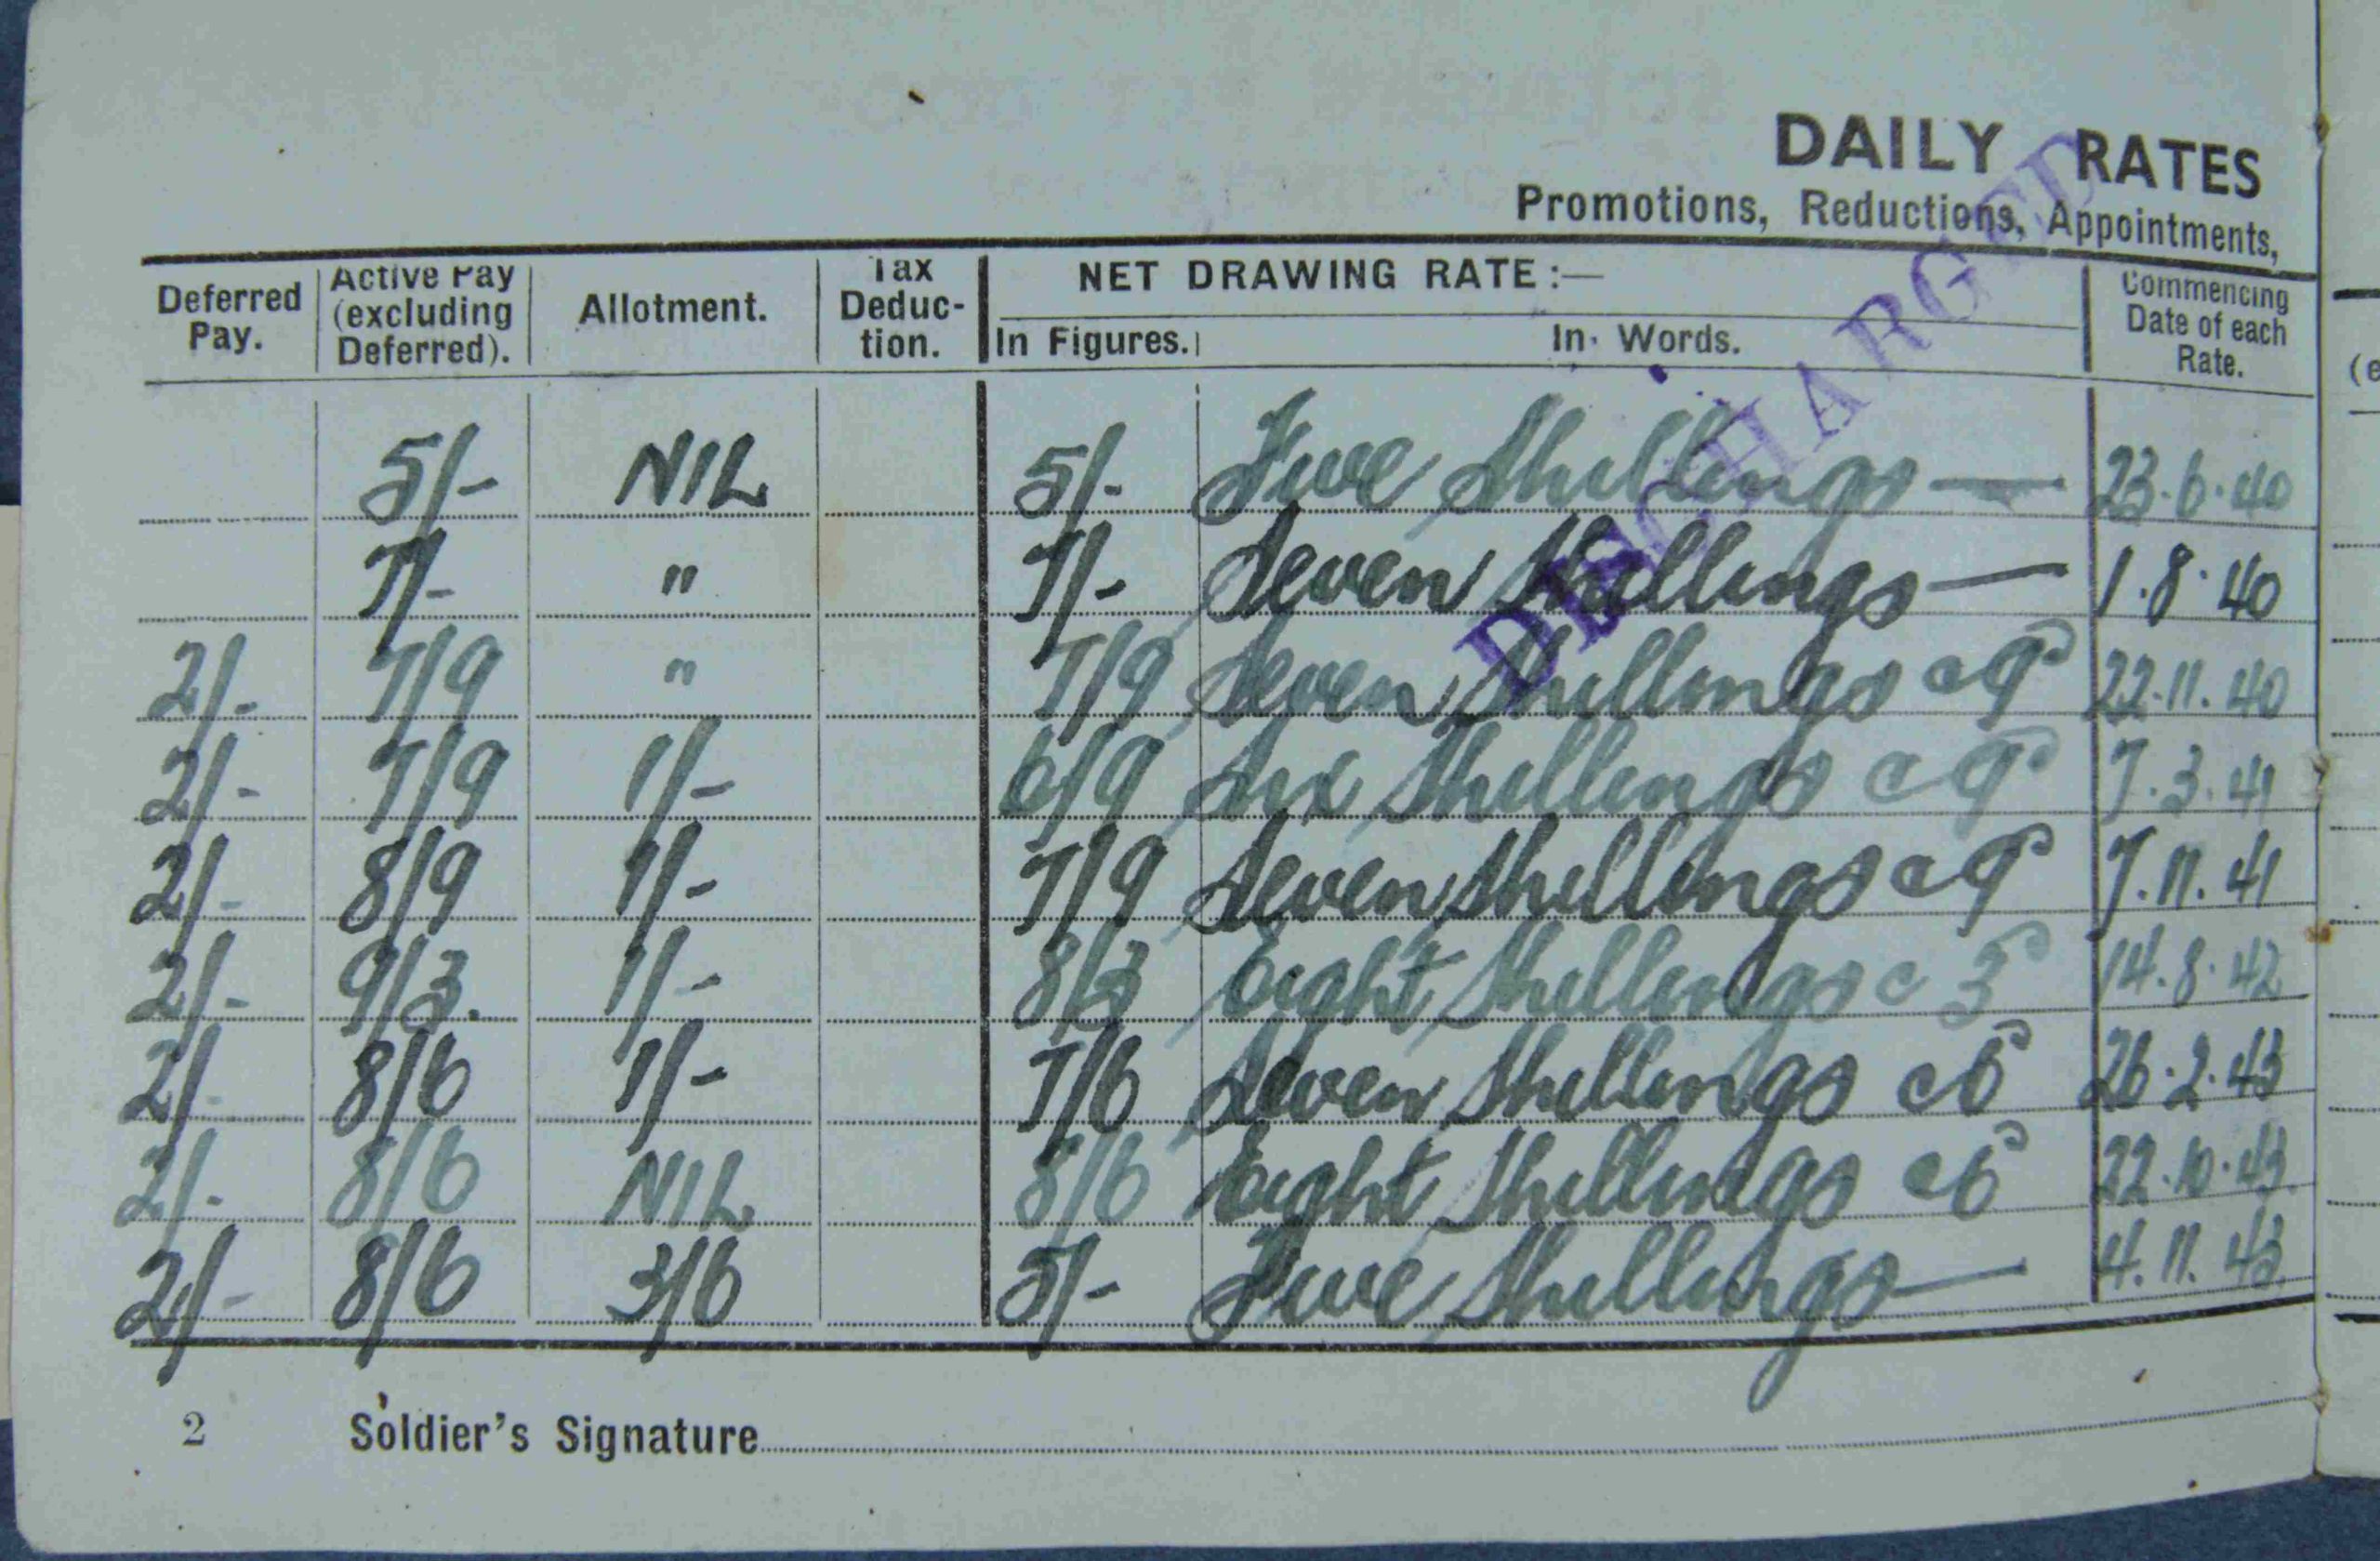 DAILY RATES
Promotions, Reductions, Appointments,
Deferred Pay. Active Pay (excluding Deferred). Allotment. Tax Deduc-tion. NET DRAWING RATE:— In Figures. In Words. Commencing Date of each Rate.
5/- NIL 5/- Five Shillings — 23.6.40
7/- " 7/- Seven Shillings — 1.8.40
2/- 7/9 " 7/9 Seven Shillings & 9d 22.11.40
2/- 7/9 1/- 6/9 Six Shillings & 9d 7.3.41
2/- 8/9 1/- 7/9 Seven Shillings & 9d 7.11.41
2/- 9/3. 1/- 8/3 Eight Shillings & 3d 14.8.42
2/- 8/6 1/- 7/6 Seven Shillings & 6d 26.2.43
2/- 8/6 NIL 8/6 Eight Shillings & 6d 22.10.43
2/- 8/6 3/6 5/- Five Shillings — 4.11.43
DISCHARGED
2 Soldier's Signature
(e